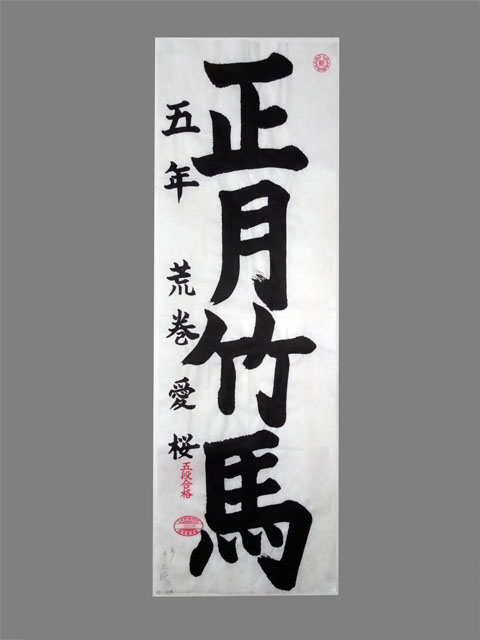 正月竹馬
五年 荒巻愛桜
五段合格